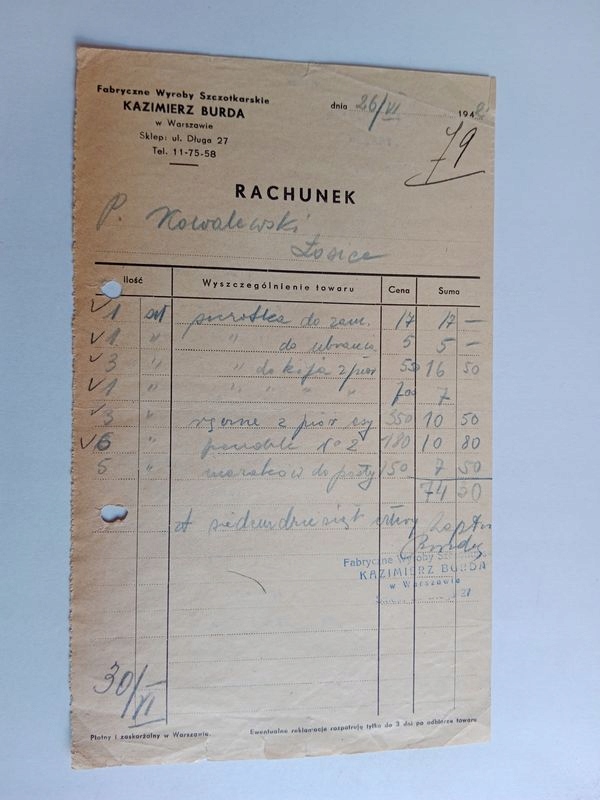 Fabryczne Wyroby Szczotkarskie
KAZIMIERZ BURDA
w Warszawie
Sklep: ul. Długa 27
Tel. 11-75-58
dnia 26/VI 194
79
RACHUNEK
P. Kowalewski
Łosice
Ilość Wyszczególnienie towaru Cena Suma
1 szt szczotka do zam. 17 17 —
1 " " do ubrania 5 5 —
3 " " do kija z piór 550 16 50
1 " " " " " 700 7
3 " z piór 350 10 50
6 " pendzli No 2 180 10 80
5 " do pasty 150 7 50
74 30
zł siedemdziesiąt cztery
Burda
Fabryczne Wyroby
KAZIMIERZ BURDA
w Warszawie
30/VI
Płatny i zaskarżalny w Warszawie. Ewentualne reklamacje rozpatruję tylko do 3 dni po odbiorze towaru